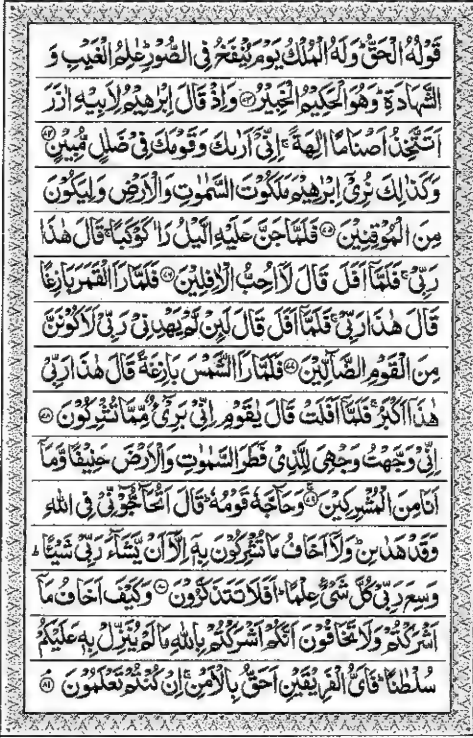 قَوْلُهُ الْحَقُّ ؕ وَلَهُ الْمُلْكُ يَوْمَ يُنْفَخُ فِى الصُّوْرِ ؕ عٰلِمُ الْغَيْبِ وَ
الشَّهَادَةِ ؕ وَهُوَ الْحَكِيْمُ الْخَبِيْرُ ﴿۷۳﴾ وَاِذْ قَالَ اِبْرٰهِيْمُ لِاَبِيْهِ اٰزَرَ
اَتَتَّخِذُ اَصْنَامًا اٰلِهَةً ۚ اِنِّىْۤ اَرٰىكَ وَقَوْمَكَ فِىْ ضَلٰلٍ مُّبِيْنٍ ﴿۷۴﴾
وَكَذٰلِكَ نُرِىْۤ اِبْرٰهِيْمَ مَلَكُوْتَ السَّمٰوٰتِ وَالْاَرْضِ وَلِيَكُوْنَ
مِنَ الْمُوْقِنِيْنَ ﴿۷۵﴾ فَلَمَّا جَنَّ عَلَيْهِ الَّيْلُ رَاٰ كَوْكَبًا ۚ قَالَ هٰذَا
رَبِّىْ ۚ فَلَمَّاۤ اَفَلَ قَالَ لَاۤ اُحِبُّ الْاٰفِلِيْنَ ﴿۷۶﴾ فَلَمَّا رَاَ الْقَمَرَ بَازِغًا
قَالَ هٰذَا رَبِّىْ ۚ فَلَمَّاۤ اَفَلَ قَالَ لَٮِٕنْ لَّمْ يَهْدِنِىْ رَبِّىْ لَاَكُوْنَنَّ
مِنَ الْقَوْمِ الضَّآلِّيْنَ ﴿۷۷﴾ فَلَمَّا رَاَ الشَّمْسَ بَازِغَةً قَالَ هٰذَا رَبِّىْ
هٰذَاۤ اَكْبَرُ ۚ فَلَمَّاۤ اَفَلَتْ قَالَ يٰقَوْمِ اِنِّىْ بَرِىْٓءٌ مِّمَّا تُشْرِكُوْنَ ﴿۷۸﴾
اِنِّىْ وَجَّهْتُ وَجْهِىَ لِلَّذِىْ فَطَرَ السَّمٰوٰتِ وَالْاَرْضَ حَنِيْفًا وَّمَاۤ
اَنَا مِنَ الْمُشْرِكِيْنَ ﴿۷۹﴾ وَحَآجَّهٗ قَوْمُهٗ ؕ قَالَ اَتُحَآجُّوْٓنِّىْ فِى اللّٰهِ
وَقَدْ هَدٰٮنِ ؕ وَلَاۤ اَخَافُ مَا تُشْرِكُوْنَ بِهٖۤ اِلَّاۤ اَنْ يَّشَآءَ رَبِّىْ شَيْـًٔا ؕ
وَسِعَ رَبِّىْ كُلَّ شَىْءٍ عِلْمًا ؕ اَفَلَا تَتَذَكَّرُوْنَ ﴿۸۰﴾ وَكَيْفَ اَخَافُ مَاۤ
اَشْرَكْتُمْ وَلَا تَخَافُوْنَ اَنَّكُمْ اَشْرَكْتُمْ بِاللّٰهِ مَا لَمْ يُنَزِّلْ بِهٖ عَلَيْكُمْ
سُلْطٰنًا ؕ فَاَىُّ الْفَرِيْقَيْنِ اَحَقُّ بِالْاَمْنِ ۚ اِنْ كُنْتُمْ تَعْلَمُوْنَ ۘ ﴿۸۱﴾